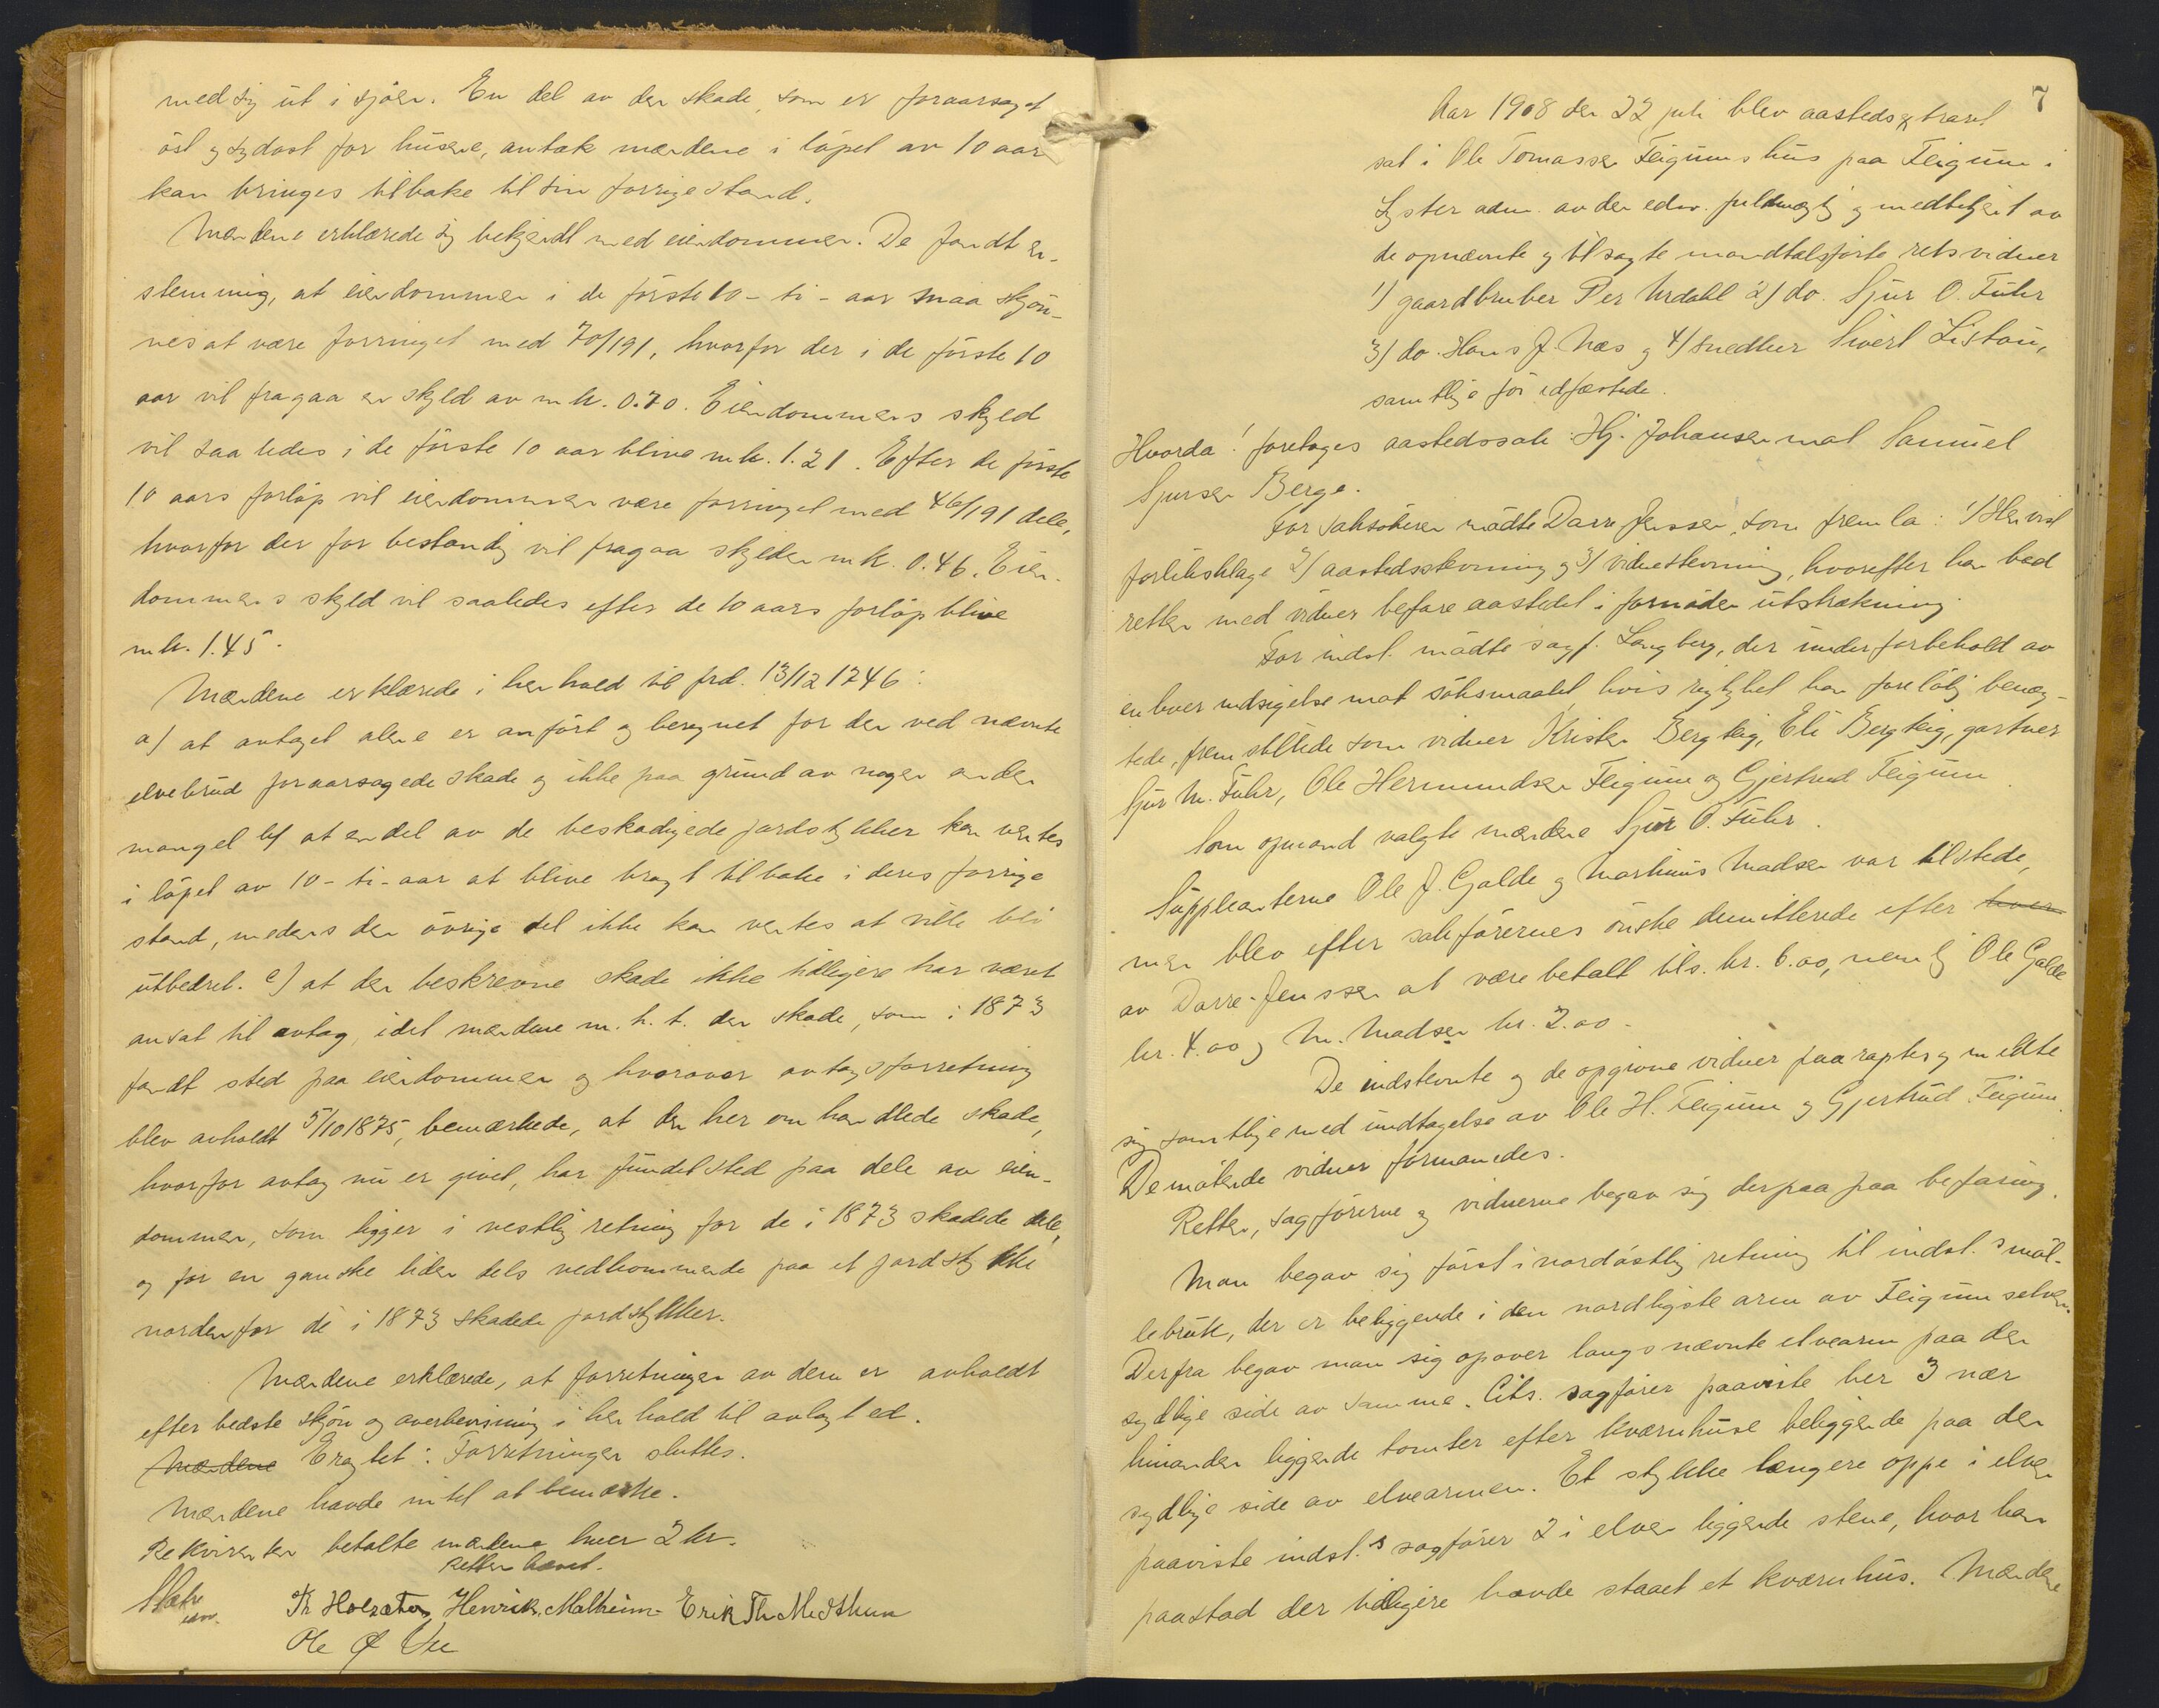 med sig ut i sjöen. En del av den skade, som er foraarsaget
öst og sydöst for husene, antok mændene i löpet av 10 aar
kan bringes tilbake til sin forrige stand.
Mændene erklærede sig bekjendt med eiendommen. De fandt en-
stemmig, at eiendommen i de förste 10 - ti - aar maa skjön-
nes at være forringet med 70/191, hvorfor der i de förste 10
aar vil fragaa en skyld av mk. 0.70. Eiendommens skyld
vil saaledes i de förste 10 aar blive mk. 1.21. Efter de förste
10 aars forlöp vil eiendommen være forringet med 46/191 dele,
hvorfor der for bestandig vil fragaa skylden mk. 0.46. Eien-
dommens skyld vil saaledes efter de 10 aars forlöp blive
mk. 1.45.
Mændene erklærede i henhold til frd. 13/12 1746:
a) at avtaget alene er anfört og beregnet for den ved nævnte
elvebrud foraarsagede skade og ikke paa grund av nogen anden
mangel b) at en del av de beskadigede jordstykker kan ventes
i löpet av 10 - ti - aar at blive bragt tilbake i deres forrige
stand, medens den övrige del ikke kan ventes at ville bli
utbedret. c) at den beskrevne skade ikke tidligere har været
ansat til avtag, idet mændene m. h. t. den skade, som i 1873
fandt sted paa eiendommen og hvorover avtagsforretning
blev avholdt 5/10 1875, bemærkede, at den her omhandlede skade,
hvorfor avtag nu er givet, har fundet sted paa dele av eien-
dommen, som ligger i vestlig retning for de i 1873 skadede dele,
og for en ganske liden dels vedkommende paa et jordstykke
nordenfor de i 1873 skadede jordstykker.
Mændene erklærede, at forretningen av dem er avholdt
efter bedste skjön og overbevisning i henhold til avlagt ed.
Mændene Eragtet: Forretningen sluttes.
Mændene havde intet at bemærke.
Rekvirenten betalte mændene hver 2 kr.
Retten hævet.
edv.
Th Holsæter Henrik Malheim Erik Th Midthun
Ole Ø Vee
7
Aar 1908 den 22 juli blev aastedsextraret
sat i Ole Tomassen Feigums hus paa Feigum i
Lyster adm. av den edsv. fuldmægtig og medbetjent av
de opnævnte og tilsagte mandtalsförte retsvidner
1) gaardbruker Per Urdahl 2) do. Sjur O. Fuhr
3) do. Hans J. Næs og 4) snedker Sivert Listou,
samtlige för edfæstede.
Hvorda! foretoges aastedssak: Hj. Johansen mot Samuel
Sjursen Berge.
For saksökeren mödte Darre Jenssen, som fremla: 1) Henvist
forliksklage 2) aastedsstevning og 3) vidnestevning, hvorefter han bad
retten med vidner befare aastedet i fornöden utstrækning.
For indst. mödte sagf. Langberg, der under forbehold av
enhver indsigelse mot söksmaalet, hvis rigtighet han forelöbig benæg-
tede, fremstillede som vidner Kristen Bergteig, Eli Bergteig, gartner
Sjur M. Fuhr, Ole Hermundsen Feigum og Gjertrud Feigum
Som opmand valgte mændene Sjur O. Fuhr.
Suppleanterne Ole J. Galde og Martinus Madsen var tilstede,
men blev efter sakförernes önske demitterede efter hver
av Darre-Jenssen at være betalt tils. kr. 6.00, nemlig Ole Galde
kr. 4.00 og M. Madsen kr. 2.00.
De indstevnte og de opgivne vidner paaraaptes og meldte
sig samtlige med undtagelse av Ole H. Feigum og Gjertrud Feigum.
De mötende vidner formanedes.
Retten, sagförerne og vidnerne begav sig derpaa paa befaring.
Man begav sig först i nordöstlig retning til indst.s möl-
lebruk, der er beliggende i den nordligste arm av Feigumselven.
Derfra begav man sig opover langs nævnte elvearm paa den
sydlige side av samme. Cits. sagförer paaviste her 3 nær
hinanden liggende tomter efter kværnhuse beliggende paa den
sydlige side av elvearmen. Et stykke længere oppe i elven
paaviste indst.s sagförer 2 i elven liggende stene, hvor han
paastod der tidligere havde staaet et kværnhus. Mændene